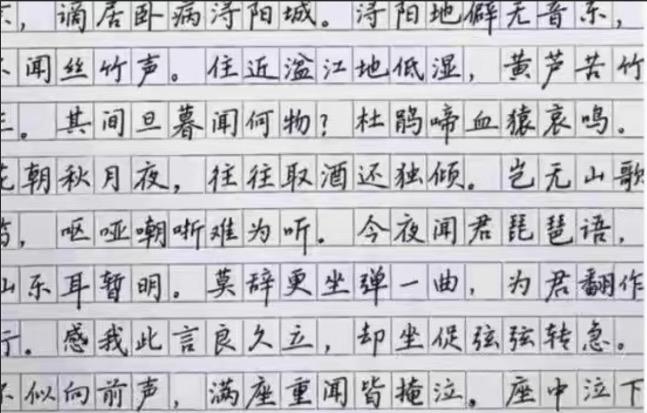 , 谪居卧病浔阳城。浔阳地僻无音乐,
闻丝竹声。住近湓江地低湿, 黄芦苦竹
。其间旦暮闻何物? 杜鹃啼血猿哀鸣。
花朝秋月夜, 往往取酒还独倾。岂无山歌
笛, 呕哑嘲哳难为听. 今夜闻君琵琶语,
山乐耳暂明。莫辞更坐弹一曲, 为君翻作
行. 感我此言良久立, 却坐促弦弦转急。
似向前声, 满座重闻皆掩泣。座中泣下